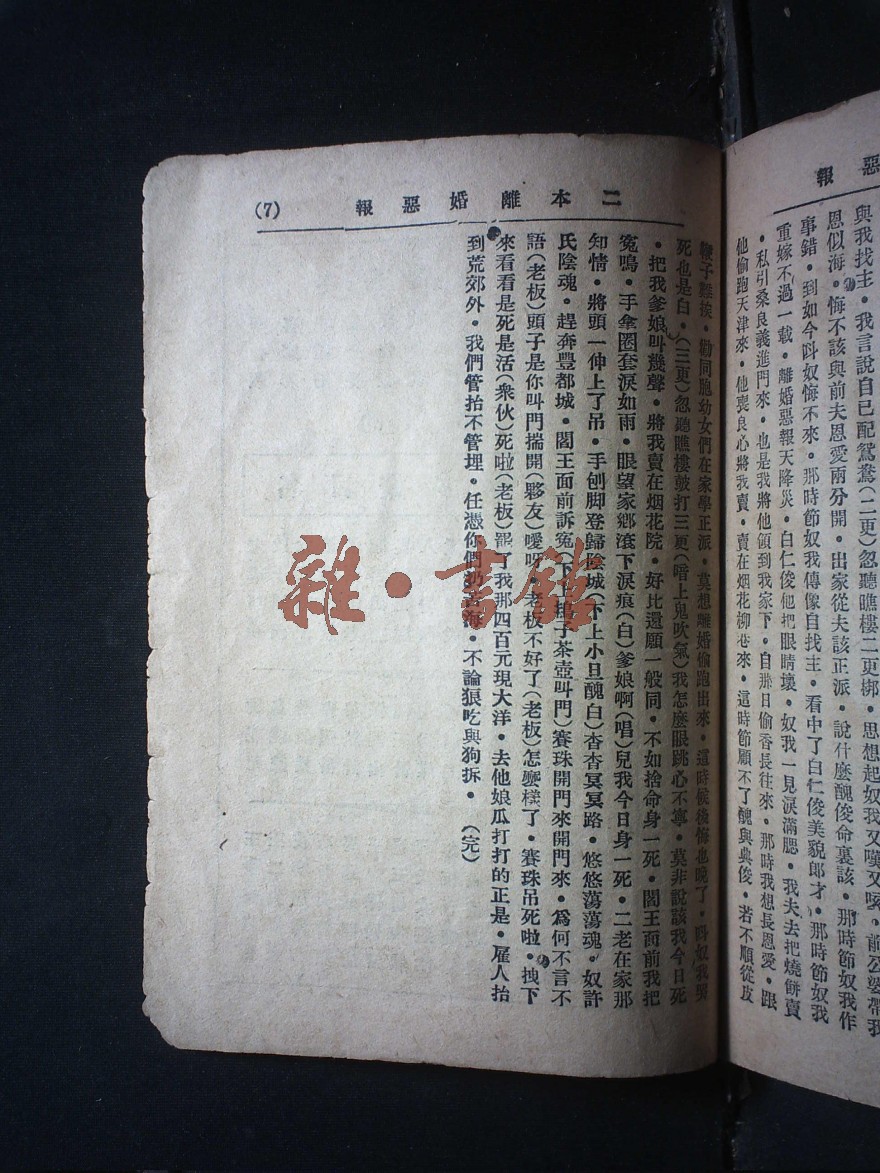 惡報
與我找主・我言說自已配鴛鴦(二更)忽聽譙樓二更梆・思想起奴我又嘆又咳・前公婆帶我
恩似海・悔不該與前夫恩愛兩分開・出家從夫該正派・說什麽醜俊命裏該・那時節奴我作
事錯・到如今叫奴悔不來・那時節奴我傳像自找主・看中了白仁俊美貌郎才・那時節奴我
重嫁不過一載・離婚惡報天降災・白仁俊他把眼睛壞・奴我一見淚滿腮・我夫去把燒餅賣
・私引桑良義進門來・也是我將他領到我家下・自那日偷香長往來・那時我想長恩愛・跟
他偷跑天津來・他喪良心將我賣・賣在烟花柳巷來・這時節顧不了醜與典俊・若不順從皮
二本離婚惡報
(7)
鞭子難挨・勸同胞幼女們在家學正派・莫想離婚偷跑出來・這時候後悔也晚了・叫奴我
死也是白・(三更)忽聽譙樓皷打三更(暗上鬼吹氣)我怎麽眼跳心不寧・莫非說該我今日死
・把我爹娘叫幾聲・將我賣在烟花院・好比還願一般同・不如捨命身一死・閻王面前我把
寃鳴・手拿圈套淚如雨・眼望家鄉滚下淚痕(白)爹娘啊(唱)兒我今日身一死・二老在家那
知情・將頭一伸上了吊・手刨脚登歸陰城(下上小旦醜白)杳杳冥冥路・悠悠蕩蕩魂・奴許
氏陰魂・趕奔豐都城・閻王面前訴寃(下上 子茶壺叫門)賽珠開門來開門來・爲何不言不
語(老板)頭子是你叫門揣開(夥友)噯呀・老板不好了(老板)怎麽樣了・賽珠吊死啦・拽下
來看看是死是活(衆伙)死啦(老板)罷了我那四百元現大洋・去他娘瓜打打的正是・雇人抬
到荒郊外・我們管抬不管埋・任憑你們 海・不論狼吃與狗拆・ (完)
雜・書館